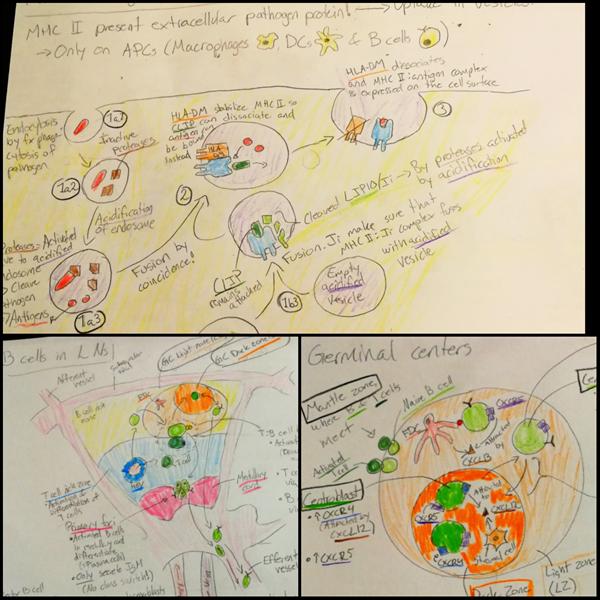 MHC II present extracellular pathogen protein!
→ Only on APCs (Macrophages DCs & B cells)
Endocytosis
1a1
Inactive
proteases
1a2
Acidification
of endosome
Proteases: Activated
due to acidified
endosome
→ Cleave
pathogen
→ Antigens
1a3
HLA-DM stabilize MHC II so
CLIP can dissociate and
antigen can
be bound
instead
2
Fusion by
coincidence!
HLA-DM dissociates
and MHC II:antigen complex
is expressed on the cell surface
3
Cleaved LIP10/Ii → By proteases activated
by acidification
Fusion. Ii make sure that
MHC II:Ii complex fuses
with acidified
vesicle
CLIP
remains
attached
1b3
Empty
acidified
vesicle
B cells in LNs
Afferent
vessel
GC Light zone
GC Dark zone
FDC
B cell rich
zone
T cell
HEV
T cell rich zone
T cells
Primary foci
• Activated B cells
in medullary and
differentiate
(→ Plasma cell)
• Only secrete IgM
(No class switch!)
Medullary
zone
Efferent
vessel
Germinal centers
Mantle zone,
where B & T cells
meet
Naive B cell
Activated
T cell
FDC
CXCR5
Attracted
by
CXCL13
Centroblast
• ↑ CXCR4
(Attracted by
CXCL12)
• ↑ CXCR5
CXCR5
Attracted
to
CXCL12
CXCR4
Stromal cell
Dark Zone
Light zone
(LZ)